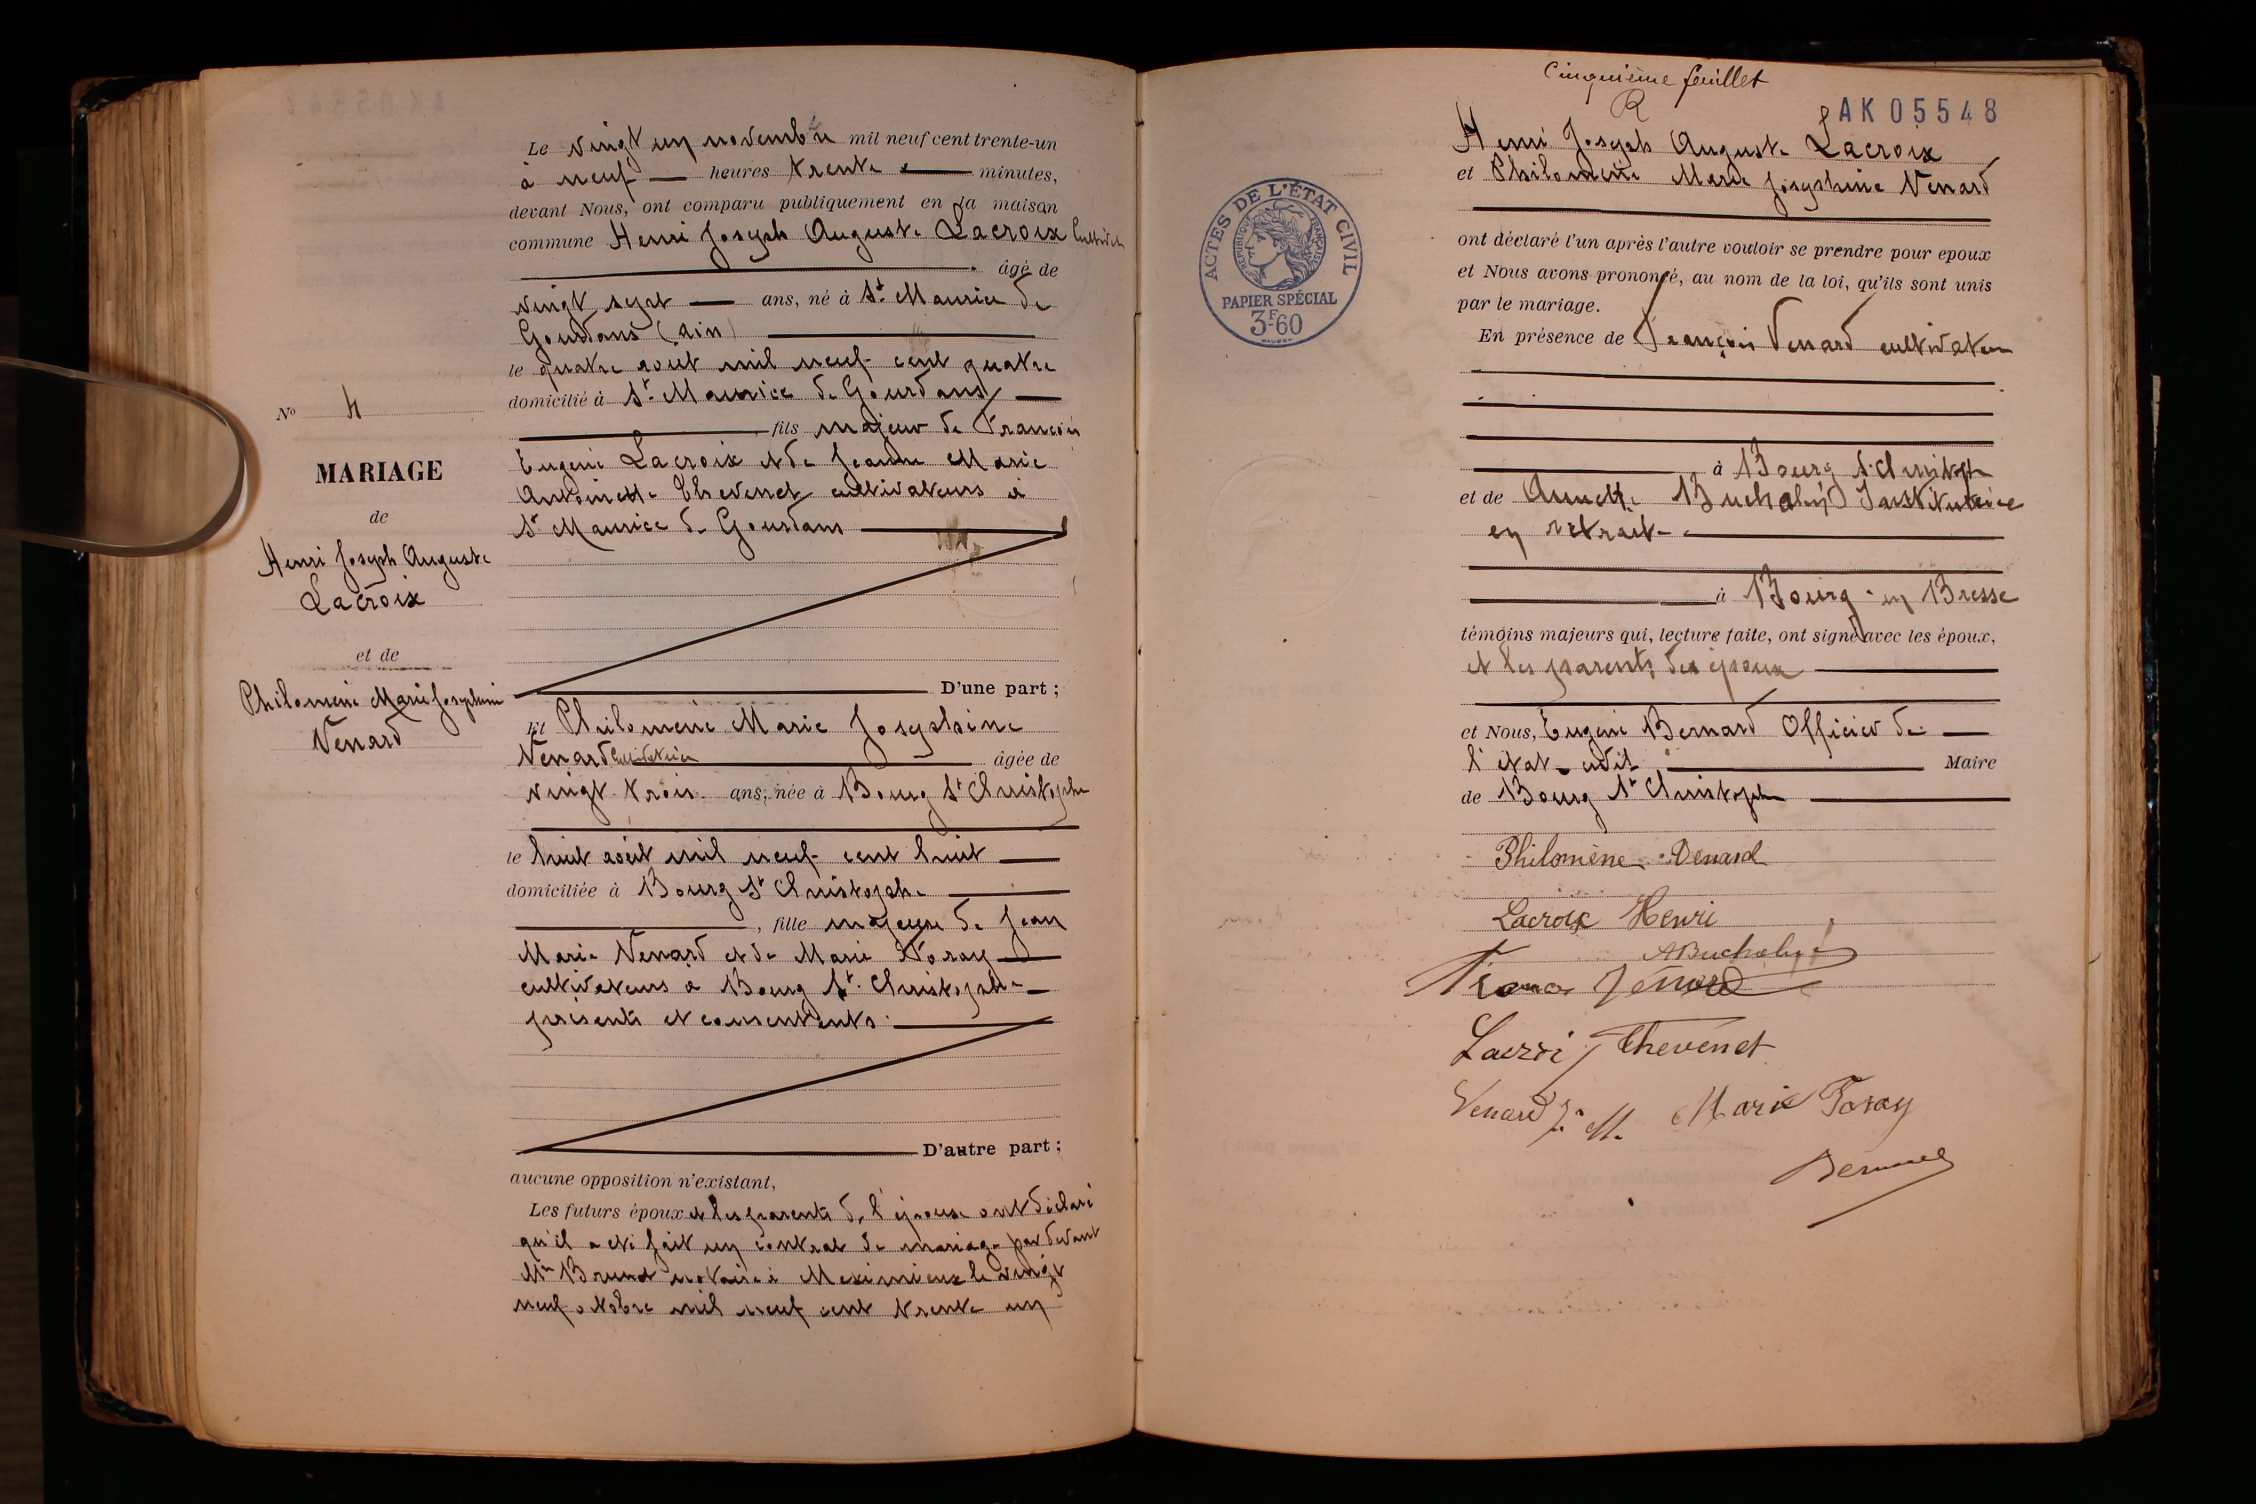 N° 4
MARIAGE
de
Henri Joseph Auguste
Lacroix
et de
Philomène Marie Joséphine
Venard
Le vingt un novembre mil neuf cent trente-un
à neuf heures trente minutes,
devant Nous, ont comparu publiquement en la maison
commune Henri Joseph Auguste Lacroix
âgé de
vingt sept ans, né à St Maurice de
Gourdans (Ain)
le quatre août mil neuf cent quatre
domicilié à St Maurice de Gourdans
fils majeur de François
Eugène Lacroix et de Jeanne Marie
Antoinette Thevenet cultivateurs à
St Maurice de Gourdans
D'une part ;
Et Philomène Marie Joséphine
Venard cultivatrice âgée de
vingt trois ans, née à Bourg St Christophe
le huit août mil neuf cent huit
domiciliée à Bourg St Christophe
, fille majeure de Jean
Marie Venard et de Marie Foray
cultivateurs à Bourg St Christophe
présents et consentents.
D'autre part ;
aucune opposition n'existant,
Les futurs époux et les parents de l'épouse ont déclaré
qu'il a été fait un contrat de mariage par devant
Me notaire à Meximieux le vingt
neuf octobre mil neuf cent trente un
Cinquième feuillet
R
AK 05548
Henri Joseph Auguste Lacroix
et Philomène Marie Joséphine Venard
ACTES DE L'ÉTAT CIVIL
RÉPUBLIQUE FRANÇAISE
PAPIER SPÉCIAL
3F-60
ont déclaré l'un après l'autre vouloir se prendre pour epoux
et Nous avons prononcé, au nom de la loi, qu'ils sont unis
par le mariage.
En présence de François Venard cultivateur
à Bourg St Christophe
et de Annette Institutrice
en retraite
à Bourg-en Bresse
témoins majeurs qui, lecture faite, ont signé avec les époux,
et les parents des époux
et Nous, Eugène Bernard Officier de
l'état-civil Maire
de Bourg St Christophe
Philomène Venard
Lacroix Henri
Venard
Lacroi J Thevenet
Venard J. M. Marie Foray
Bernard